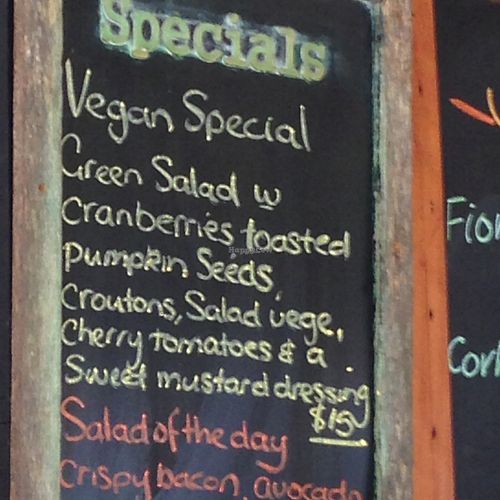 Specials
Vegan Special
Green Salad w
Cranberries toasted
Pumpkin Seeds,
Croutons, Salad vege,
Cherry tomatoes & a
Sweet mustard dressing.
$15
Salad of the day
Crispy bacon, avocado